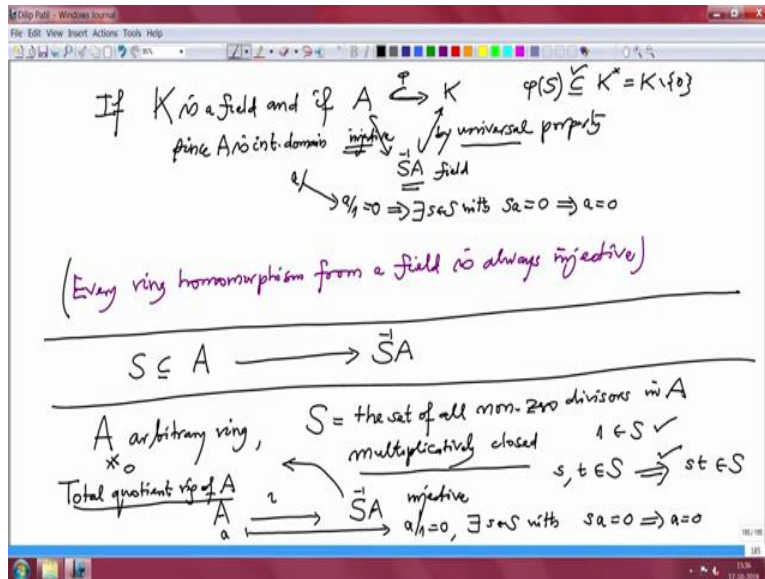 Dilip Patil - Windows Journal
File Edit View Insert Actions Tools Help
If K is a field and if A φ↪ K φ(S) ⊆ K^× = K\{0}
since A is int. domain injective by universal property
S⁻¹A field
a ↦ a/1 = 0 ⇒ ∃ s∈S with sa = 0 ⇒ a = 0
(Every ring homomorphism from a field is always injective)
S ⊆ A ⟶ S⁻¹A
A arbitrary ring, S = the set of all non-zero divisors in A
≠0 multiplicatively closed 1 ∈ S ✓
s, t ∈ S ⇒ st ∈ S
Total quotient ring of A
A ι⟶ S⁻¹A injective
a ⟼ a/1 = 0, ∃ s∈S with sa = 0 ⇒ a = 0
185
15:36